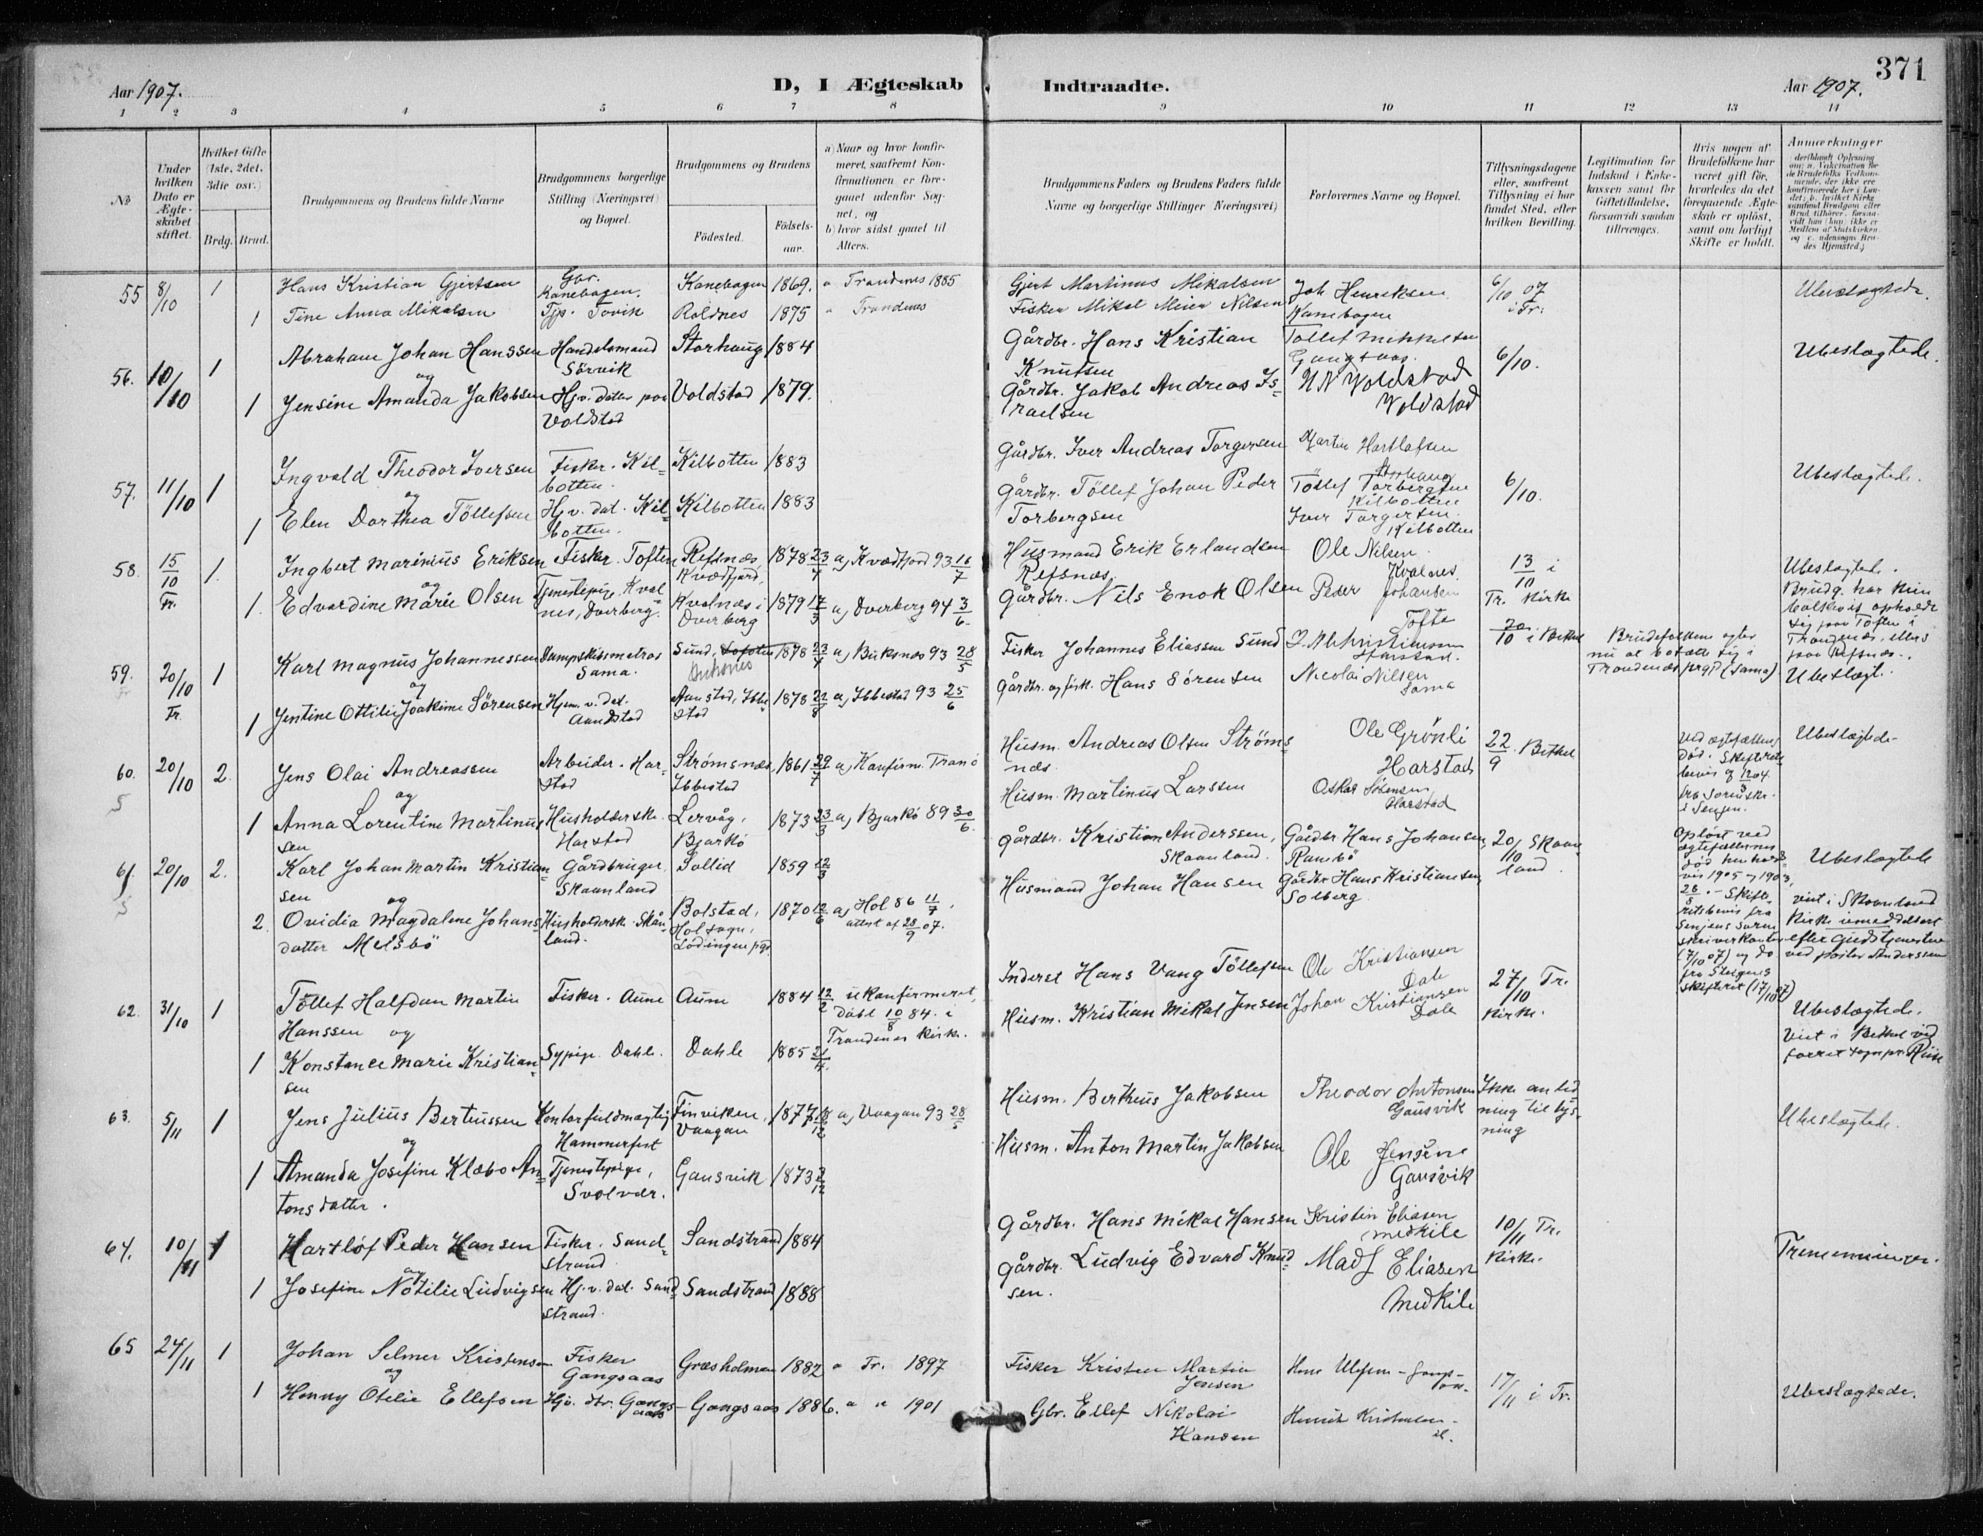 371
Aar 1907.
D, I Ægteskab Indtraadte.
Aar 1907.
1 2 3 4 5 6 7 8 9 10 11 12 13 14
No
Under hvilken Dato er Ægteskabet stiftet.
Hvilket Gifte (1ste, 2det, 3die osv.)
Brdg. Brud.
Brudgommens og Brudens fulde Navne
Brudgommens borgerlige Stilling (Næringsvei) og Bopæl.
Brudgommens og Brudens
Fødested.
Fødselsaar.
a) Naar og hvor konfirmeret, saafremt Konfirmationen er foregaaet udenfor Sognet, og
b) hvor sidst gaaet til Alters.
Brudgommens Faders og Brudens Faders fulde Navne og borgerlige Stillinger (Næringsvei)
Forlovernes Navne og Bopæl.
Tillysningsdagene eller, saafremt Tillysning ei har fundet Sted, efter hvilken Bevilling.
Legitimation for Indskud i Enkekassen samt for Giftetilladelse, forsaavidt saadan tiltrænges.
Hvis nogen af Brudefolkene har været gift før, hvorledes da det foregaaende Ægteskab er opløst, samt om lovligt Skifte er holdt.
Anmærkninger
55 8/10 1 Hans Kristian Gjertsen Gbr. Kanebogen. Kanebogen 1869. a Trondenes 1885
1 Tine Anna Mikalsen Tjp. Tovik Roldnes 1875 " Trondenes
Gjert Martinus Mikalsen Joh Henriksen 6/10 07 Ubeslægtede.
Fisker Mikal Meier Nilsen Kanebogen i Tr.
56. 10/10 1 Abraham Johan Hanssen Handelsmand Sørvik Storhaug 1884
og
1 Jensine Amanda Jakobsen Hj. v. datter paa Voldstad Voldstad 1879.
Gårdbr. Hans Kristian Knutsen Tollef Mikkelsen Gangsaas. 6/10. Ubeslægtede.
Gårdbr. Jakob Andreas Israelsen H N Voldstad Voldstad
57. 11/10 1 Ingvald Theodor Iversen Fisker. Kilbotten. Kilbotten 1883
og
1 Elen Dorthea Töllefsen Hj. v. dat. Kilbotten. Kilbotten 1883
Gårdbr. Iver Andreas Torgersen Martin Hartlofsen
Gårdbr. Töllef Johan Peder Torbergsen Töllef Torbergsen Kilbotten 6/10. Ubeslægtede.
Iver Torgersen. Kilbotten
58. 15/10 Tr. 1. Ingbert Marinius Eriksen Fisker. Toften Refsnæs, Kvædfjord, 1878 23/4 a, Kvædfjord 93 16/7
og
1. Edvardine Marie Olsen Tjenestepige, Kvalnes, Dverberg. Kvalnæs i Dverberg 1879 17/3 a, Dverberg 94 3/6.
Husmand Erik Erlandsen Refsnæs Ole Nilsen. Kvalnes. 13/10 i Tr. Kirke Ubeslægtede.
Gårdbr. Nils Enok Olsen Peder Johansen Tofte
Brudg. har kun
sig paa Toften i
Trondenæs, ellers
paa Refsnæs.
59. 20/10 Tr. 1 Karl Magnus Johannessen Dampskibsmatros Sama. Sund, 1878 23/4 a, Birksnæs 93 28/5
og
1 Jentine Ottilie Joakime Sörensen Hjem. v. dat. Aandstad Aanstad, Ibbestad 1878 21/8 a, Ibbestad 93 25/6
Fisker Johannes Eliassen Sund 20/10 i Bethel
Gårdbr. og fisk. Hans Sørensen Nicolai Nilsen Sama
Brudefolkene agter nu at bosætte sig i Trondenæs prgj. (Sama) Ubeslægt.
60. 20/10 2. Jens Olai Andreassen Arbeider. Harstad Strømsnæs, Ibbestad 1861 29/7 a, Konfirm. Tranö
og
1 Anna Lorentine Martinussen Husholderske. Harstad Lervåg, Bjarkö 1873 23/3 a, Bjarkö 89 30/6.
Husm. Andreas Olsen Strömsnæs. Ole Grönli Harstad 22/9 Bethel Ubeslægtede
Husm. Martinus Larssen Oskar Sørensen Harstad
Ved ægtefællens død. Skifterets bevis
61 20/10 2. Karl Johan Martin Kristiansen Gårdbruger Skaanland Sollid 1859 12/3
og
2. Ovidia Magdalene Johansdatter Melsbö Husholdersk. Skånland. Bolstad, Hol sogn, Lødingen pgj. 1870 12/6 a, Hol 86 11/7. attest af 28/9 07.
Gårdbr. Kristian Anderssen, Skaanland. Gårdbr Hans Johansen Rambö 20/10 Skaanland. Ubeslægtede
Husmand Johan Hansen Gårdbr Hans Kristiansen Solberg.
Opløst ved ægtefællernes død henholdsvis 1905 og 1903,
Skifteretsbevis fra Senjens sorenskriverkontor (7/10 07) og do fra Steigens skifteret (17/10 07)
viet i Skaanland Kirke umiddelbart efter gudstjenesten ved pastor Anderssen
62. 31/10 1 Töllef Halfdan Martin Hanssen og Fisker. Aune Aune 1884 12/2 ukonfirmeret, Døbt 10/8 84. i Trondenes kirke.
1 Konstance Marie Kristiansen Sypige. Dahle. Dahle 1885 21/4.
Inderst Hans Vang Töllefsen Ole Kristiansen Dale 27/10 Tr. Kirke. Ubeslægtede.
Husm. Kristian Mikal Jensen Johan Kristiansen Dale
Viet i Bethel ved
63. 5/11 1 Jens Julius Berteussen Kontorfuldmægtig Hammerfest Finviken, Vaagan 1877 a, Vaagan 93 28/5
og
1 Amanda Josefine Klæbo Antonsdatter. Tjenestepige, Svolvær. Gausvik 1873
Husm. Bertheus Jakobsen Theodor Antonsen Gausvik Ikke anledning til lysning Ubeslægtede.
Husm. Anton Martin Jakobsen Ole Jensen Gausvik
64. 10/11 1 Hartlof Peder Hansen Fisker. Sandstrand Sandstrand 1884
og
1 Josefine Natilie Ludvigsen Hj. v. dat. Sandstrand. Sandstrand 1888
Gårdbr. Hans Mikal Hansen Kristin Eliasen Medkile 10/11 Tr. Kirke. Tremenninger.
Gårdbr. Ludvig Edvard Knudsen. Mads Eliasen Medkile
65 24/11 1 Johan Selmer Kristensen Fisker Gangsaas Græsholmen 1882 a Tr. 1897
og
1 Henny Otelie Ellefsen Hjv. dtr. Gangsaas Gangsaas 1886. " " 1901
Fisker Kristen Martin Jensen 17/11 i Tr. Ubeslægtede.
Gbr. Ellef Nikolai Hansen Henrik Kristensen